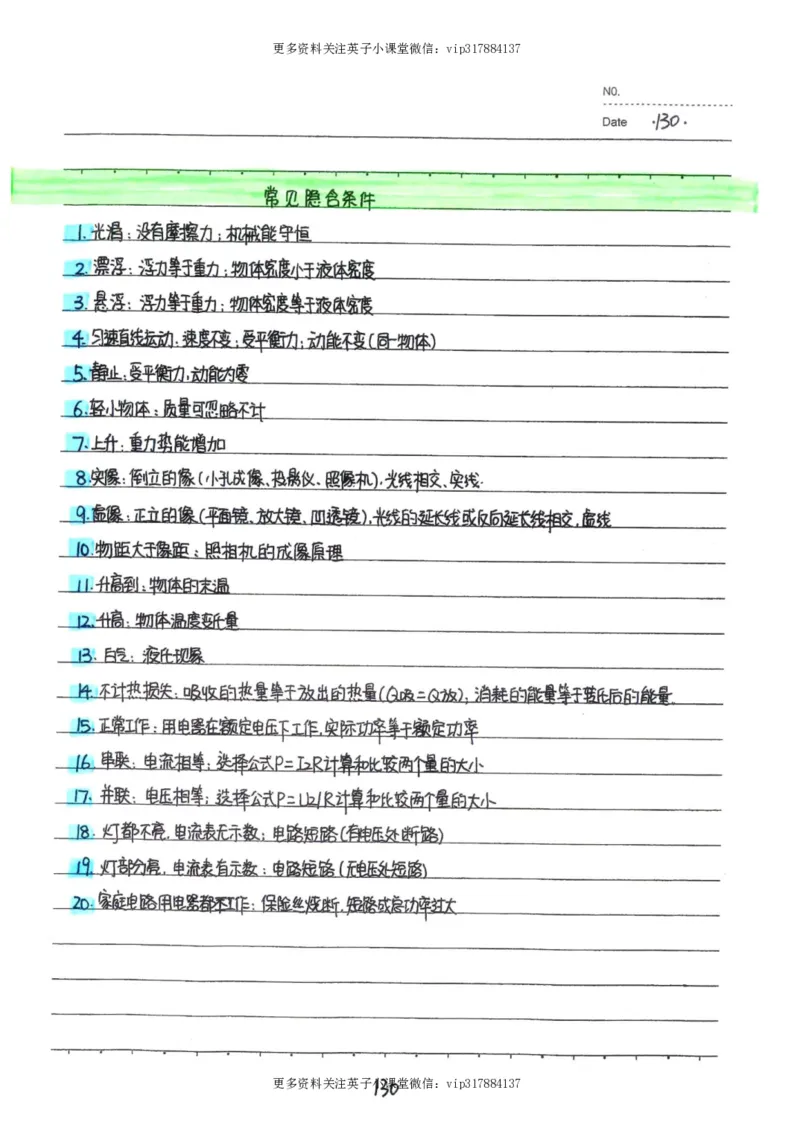 更多资料关注英子小课堂微信：vip317884137
NO.
Date ·130·
常见隐含条件
1.光滑：没有摩擦力；机械能守恒
2.漂浮：浮力等于重力；物体密度小于液体密度
3.悬浮：浮力等于重力；物体密度等于液体密度
4.匀速直线运动：速度不变；受平衡力；动能不变(同一物体)
5.静止：受平衡力，动能为零
6.轻小物体：质量可忽略不计
7.上升：重力势能增加
8.实像：倒立的像(小孔成像、投影仪、照像机)，光线相交、实线.
9.虚像：正立的像(平面镜、放大镜、凹透镜)，光线的延长线或反向延长线相交，虚线
10.物距大于像距：照相机的成像原理
11.升高到：物体的末温
12.升高：物体温度变化量
13.白气：液化现象
14.不计热损失：吸收的热量等于放出的热量(Q吸=Q放)；消耗的能量等于转化后的能量.
15.正常工作：用电器在额定电压下工作，实际功率等于额定功率
16.串联：电流相等；选择公式P=I2R计算和比较两个量的大小
17.并联：电压相等；选择公式P=U2/R计算和比较两个量的大小
18.灯都不亮，电流表无示数：电路短路(有电压处断路)
19.灯部分亮，电流表有示数：电路短路(无电压处短路)
20.家庭电路用电器都不工作：保险丝烧断，短路或总功率过大
更多资料关注英子小课堂微信：vip317884137
130